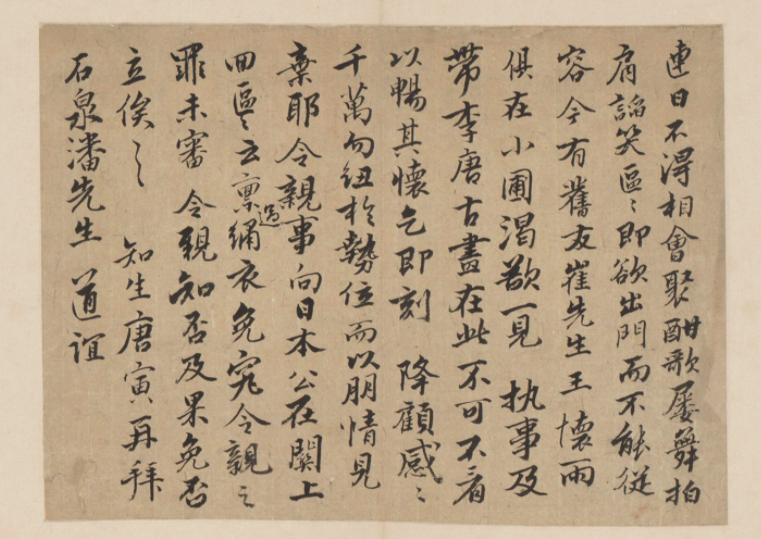 連日不得相會聚酣歌屡舞拍
肩謟笑區〻即欲出門而不能從
容今有舊友崔先生王懷雨
俱在小圃渴欲一見 执事及
带李唐古畫在此不可不看
以暢其懷乞即刻 降顧感〻
千萬勿纽於勢位而以朋情見
棄耶令親事向日本公在關上
回區〻云禀過
绸衣免究令親之
罪未審 令親知否及果免否
立俟〻 知生唐寅再拜
石泉潘先生 道誼